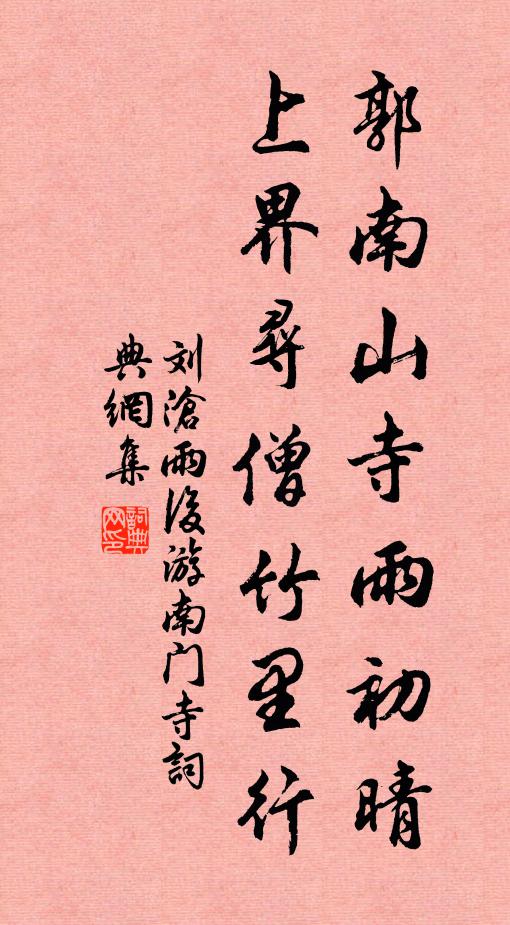 郭南山寺雨初晴
上界尋僧竹里行
刘滄雨後游南门寺詞
典網集
詞典网印